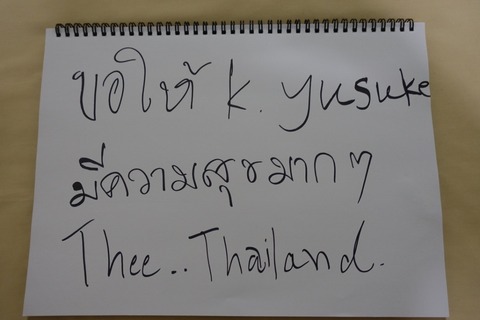 ขอให้ K. Yusuke
มีความสุขมากๆ
Thee.. Thailand.